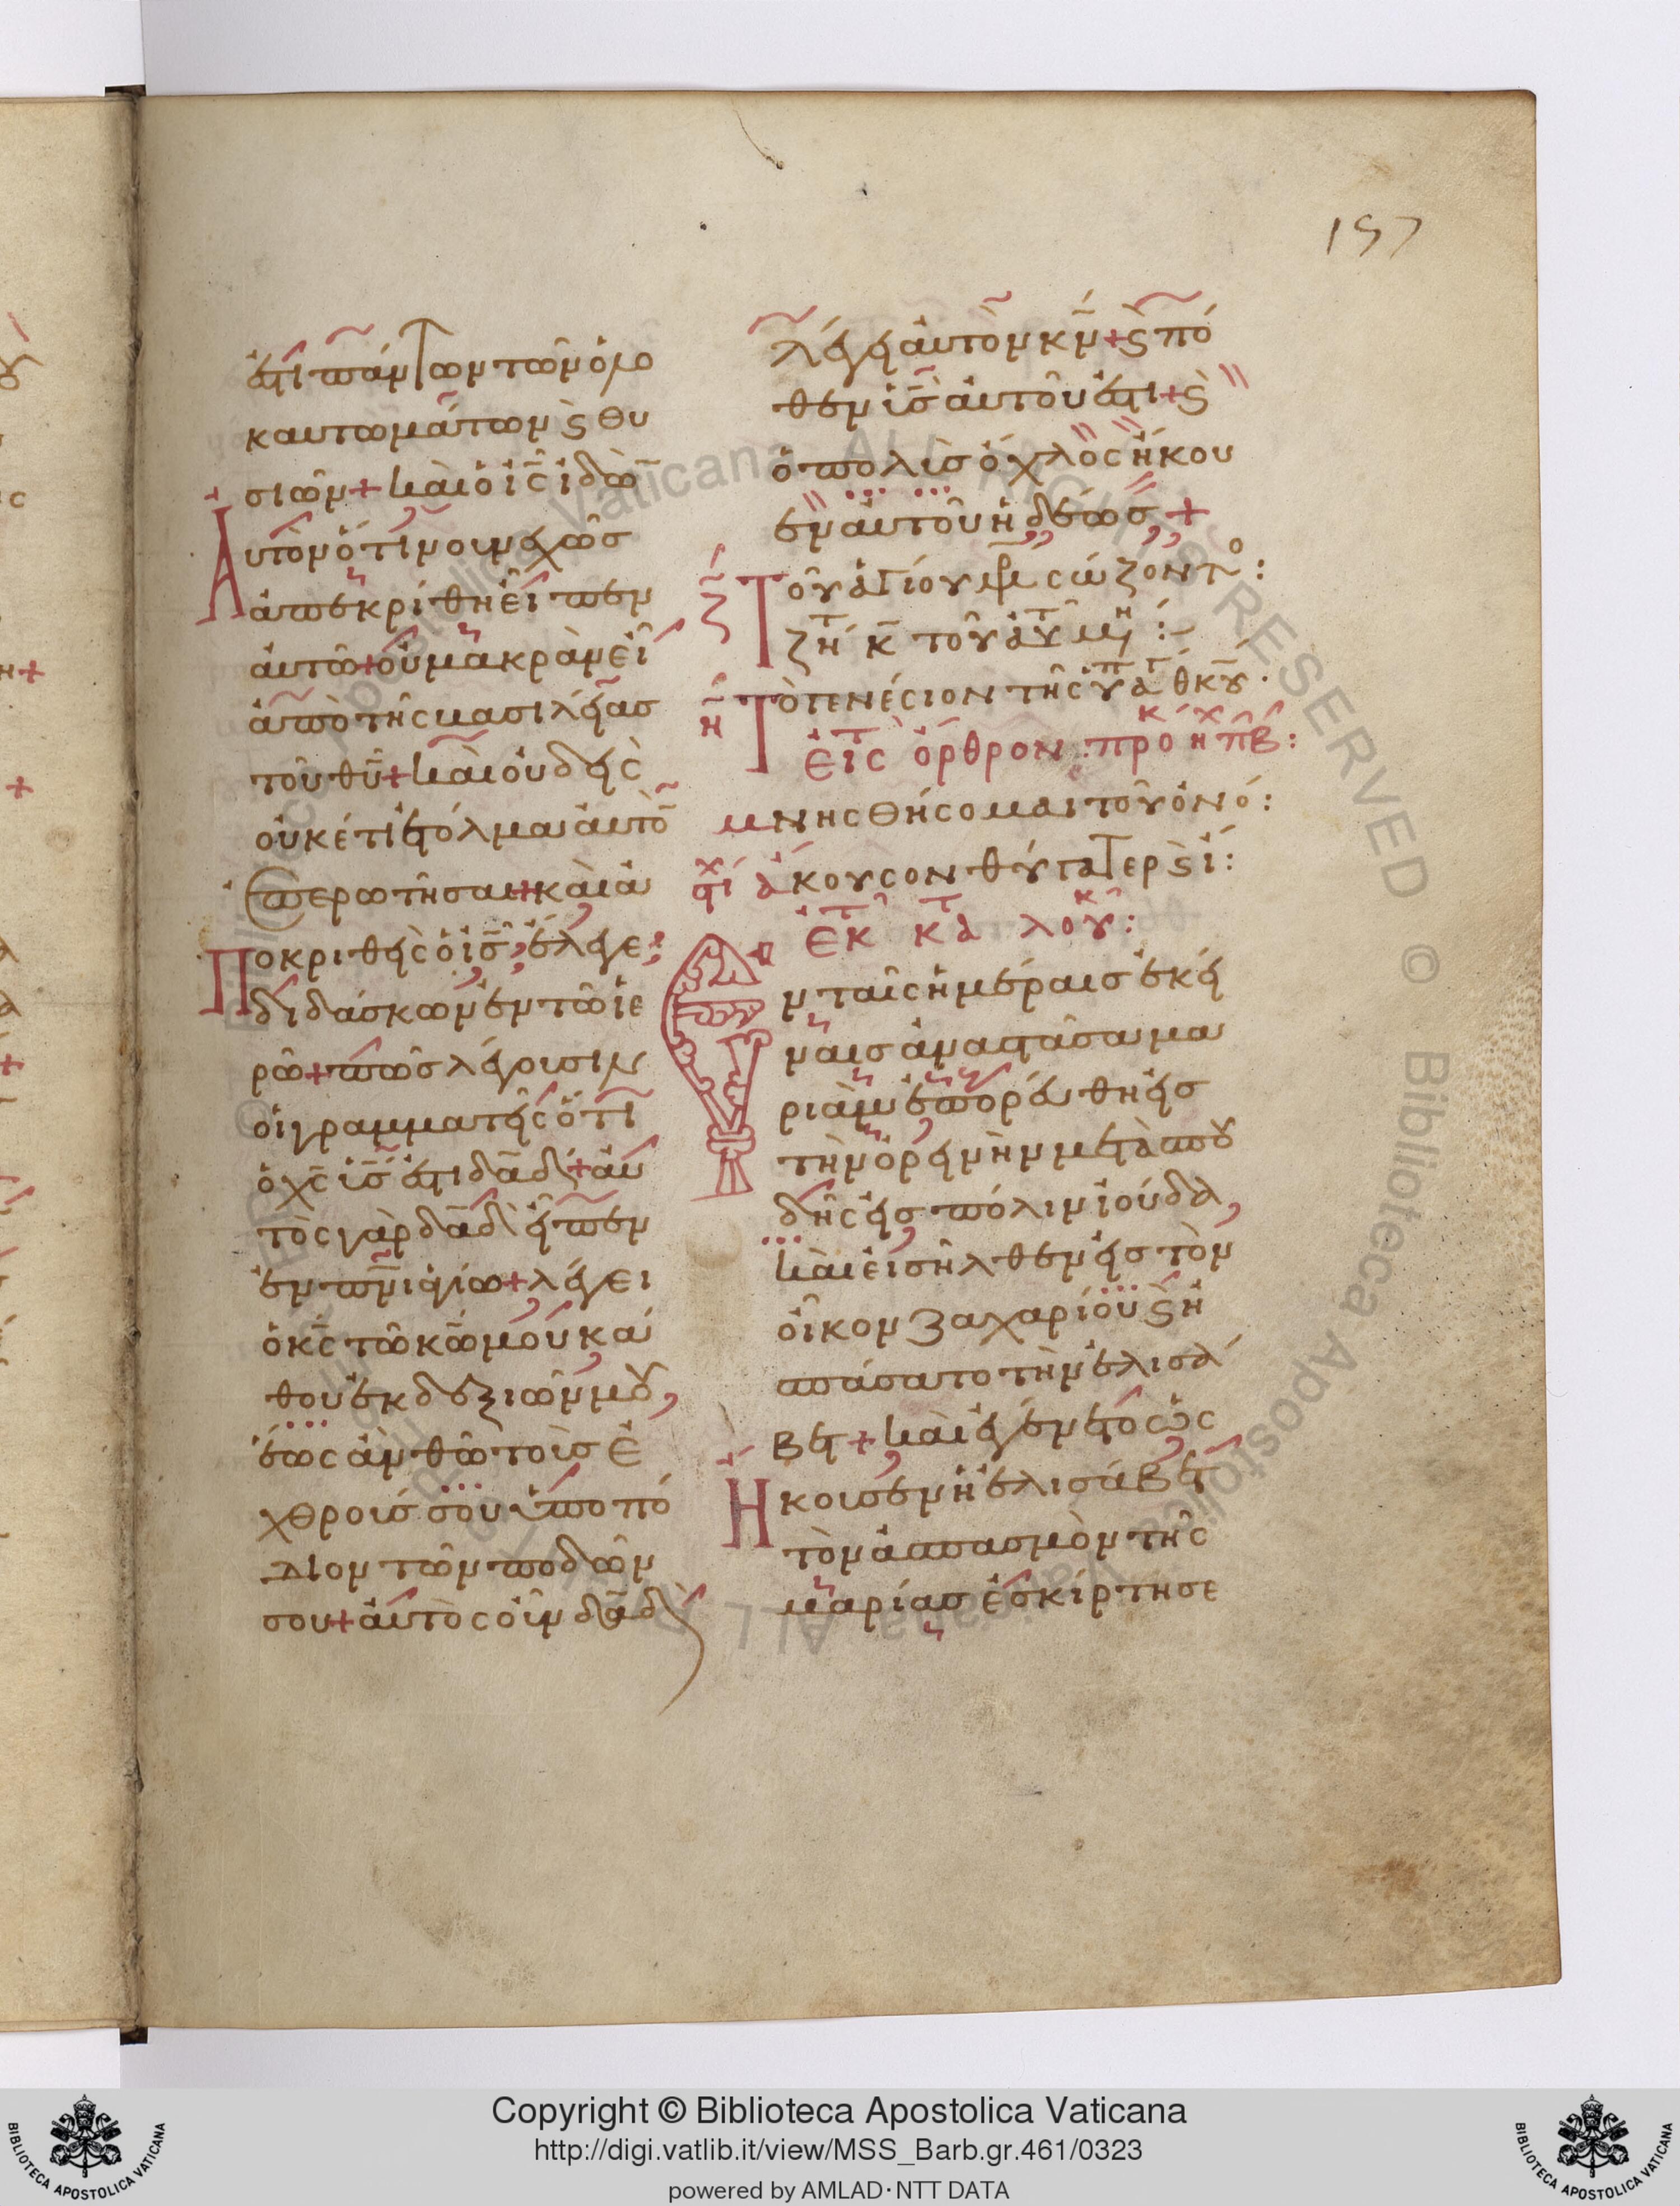 157
ἐστι πάντων τῶν ὁλο
καυτωμάτων ϗ θυ
σιῶν + καὶ ὁ ις̅ ἰδὼ̅
Αυτὸν ὅτι νουνεχῶς
ἀπεκρίθη εἶπεν
αὐτῶ + οὐ μακρὰν εἶ
ἀπὸ τῆς βασιλείας
τοῦ θυ̅ + καὶ οὐδεὶς
οὐκέτι ἐτόλμα αὐτὸ̅
ἐπερωτῆσαι + καὶ ἀ
Ποκριθεὶς ὁ ις̅ ἔλεγε
διδάσκων ἐν τῶ ἱε
ρῶ + πῶς λέγουσιν
οἱ γραμματεῖς ὅτι
ὁ χς̅ υἱς̅ ἐστι δαδ̅ + αὐ
τὸς γὰρ δαδ̅ εἶπεν
ἐν πνι̅ ἁγίω + λέγει
ὁ κς̅ τῶ κω̅ μου κά
θου ἐκ δεξιῶν μου,
ἕως ἂν θῶ τοὺς ἐ
χθρούς σου ὑποπό
διον τῶν ποδῶν
σου + αὐτὸς οὖν δαδ̅
λέγει αὐτὸν κν̅ + ϗ πό
θεν υἱς̅ αὐτοῦ ἐστι + ϗ
ὁ πολὺς ὄχλος ἤκου
εν αὐτοῦ ἡδέως, +
ζ̅ Τοῦ ἁγίου μρ σώζοντο :
ζητ κ̅ τοῦ ἁγ μη :
η̅ Τὸ γενέσιον τῆς ὑπ ἁγ θκου̅ .
εἰς τ ὄρθρον : προκ ἠχ πβ :
μνησθήσομαι τοῦ ὀνό :
στι ἄκουσον θύγατερ ϗ ἴ :
ἐκ τ κατ λουκ :
Εν ταῖς ἡμέραις ἐκεί
ναις ἀναστᾶσα μα
ριὰμ ἐπορεύθη εἰς
τὴν ὀρεινὴν μετὰ σπου
δῆς εἰς πόλιν ἰούδα,
καὶ εἰσῆλθεν εἰς τὸν
οἶκον ζαχαρίου ϗ ἠ
σπάσατο τὴν ἐλισά
βετ + καὶ ἐγένετο ὡς
Ηκουσεν ἡ ἐλισάβετ
τὸν ἀσπασμὸν τῆς
μαρίας ἐσκίρτησε
Copyright © Biblioteca Apostolica Vaticana
http://digi.vatlib.it/view/MSS_Barb.gr.461/0323
powered by AMLAD·NTT DATA
BIBLIOTECA APOSTOLICA VATICANA
BIBLIOTECA APOSTOLICA VATICANA